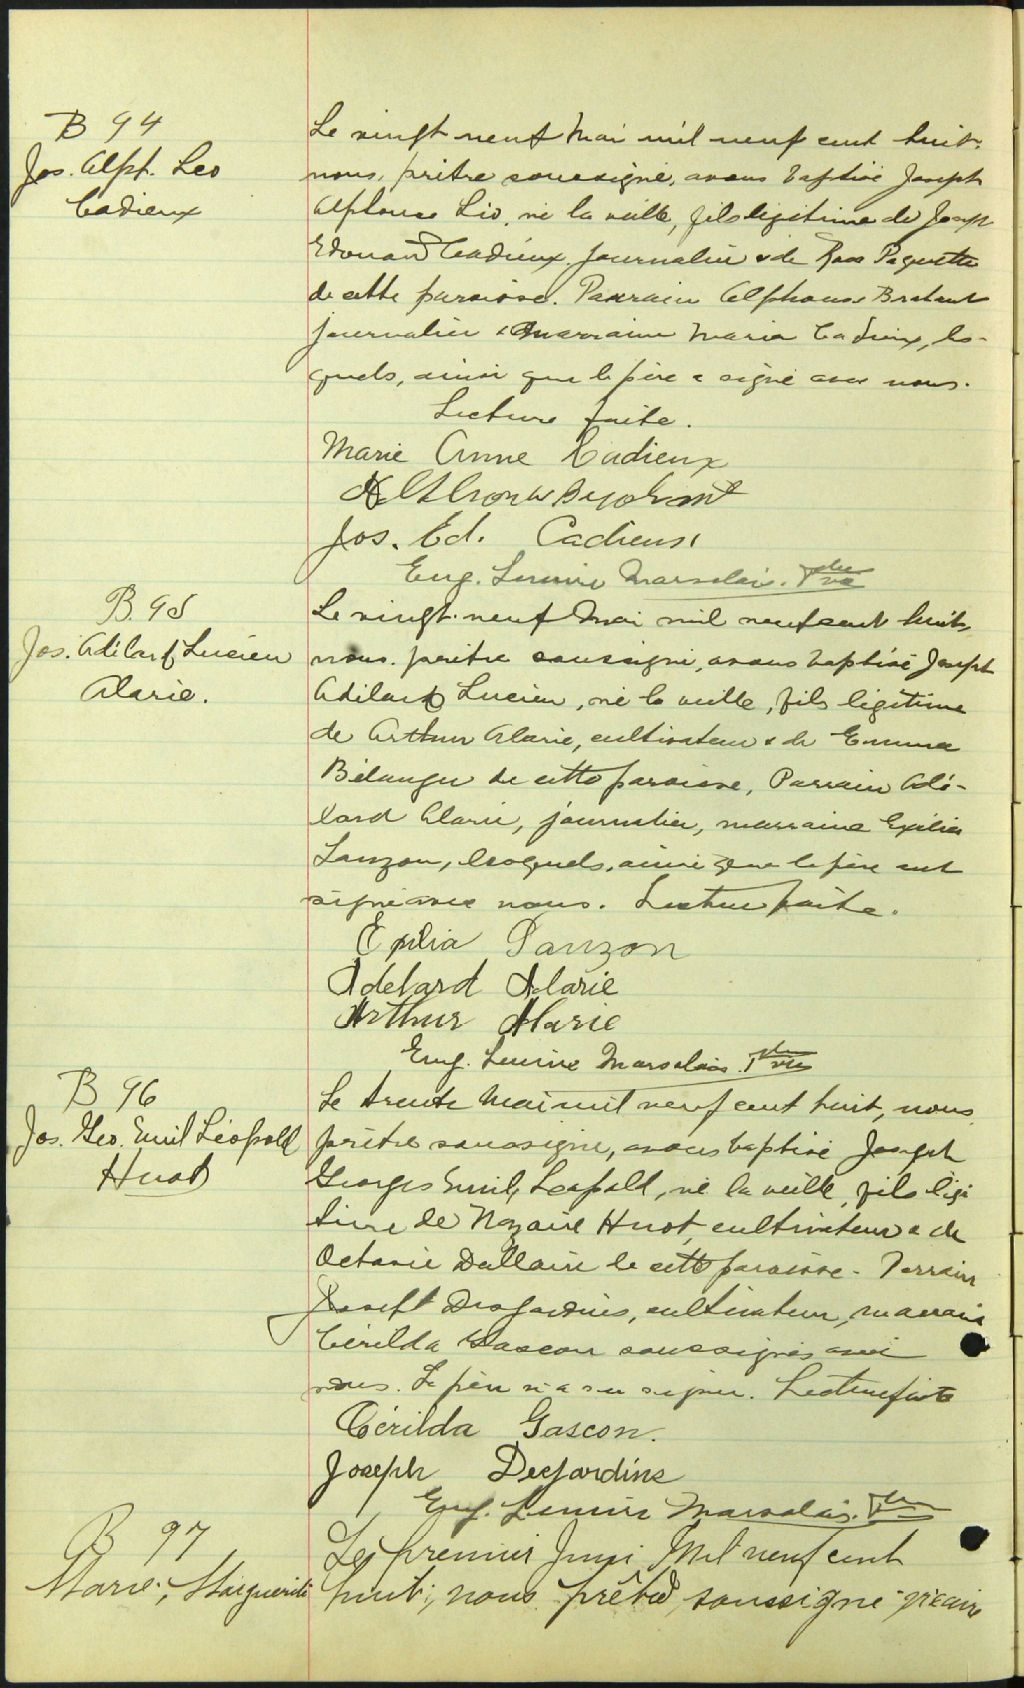 B 94
Jos. Alph. Leo
Cadieux
Le vingt neuf Mai mil neuf cent huit,
nous, prêtre soussigné, avons baptisé Joseph
Alphonse Léo, né la veille, fils légitime de Joseph
Edouard Cadieux journalier & de Rose Paquette
de cette paroisse. Parrain Alphonse
journalier & marraine Maria Cadieux, les-
quels, ainsi que le père a signé avec nous.
Lecture faite.
Marie Anne Cadieux
Jos. Ed. Cadieux
Eug. Lemire Marsolais. Ptre
B. 95
Jos. Adélard Lucien
Alarie.
Le vingt-neuf Mai mil neuf cent huit,
nous, prêtre soussigné, avons baptisé Joseph
Adélard Lucien, né la veille, fils légitime
de Arthur Alarie, cultivateur & de Emma
Bélanger de cette paroisse, Parrain Adé-
lard Alarie, journalier, marraine Exilia
Lauzon, lesquels, ainsi que le père ont
signé avec nous. Lecture faite.
Exilia Lauzon
Adelard Alarie
Arthur Alarie
Eug. Lemire Marsolais Ptre
B 96
Jos. Geo. Emil Léopold
Huot
Le trente Mai mil neuf cent huit, nous,
prêtre soussigné, avons baptisé Joseph
Georges Emile Leopold, né la veille, fils légi
time de Nazaire Huot, cultivateur & de
Octavie Dallaire de cette paroisse - Parrain
Joseph Desjardins, cultivateur, marraine
Cérilda Gascon soussignés avec
nous. Le père n'a su signer. Lecture faite
Cérilda Gascon.
Joseph Desjardins
Eug. Lemire Marsolais. Ptre
B 97
Marie, Marguerite
Le premier Juin Mil neuf cent
huit; nous prêtre, soussigné vicaire